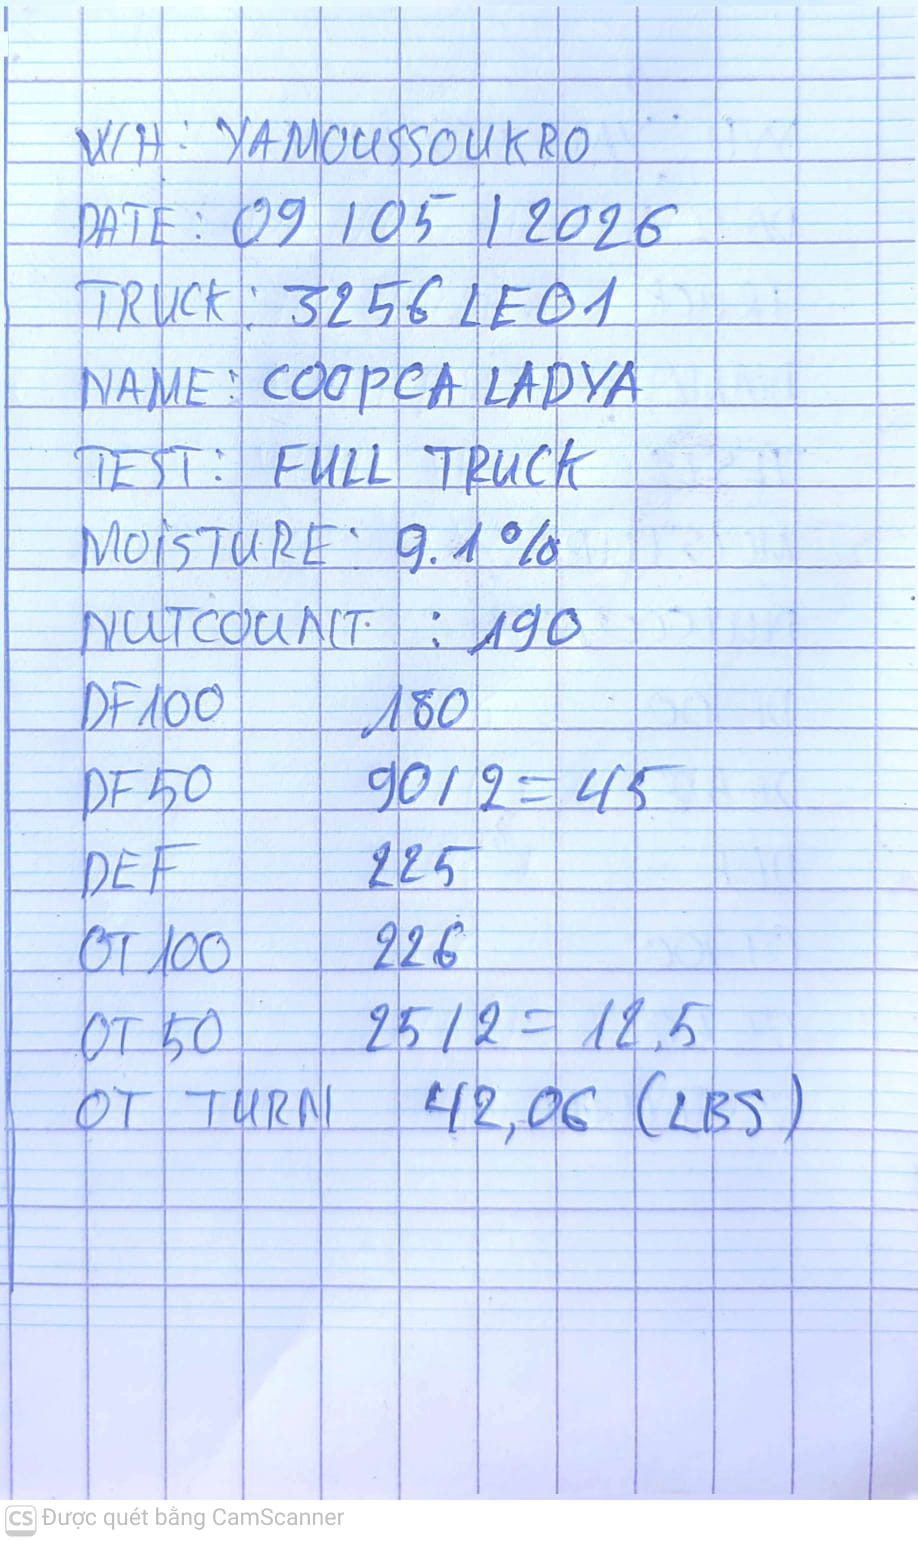 W/H: YAMOUSSOUKRO
DATE: 09/05/2026
TRUCK: 3256LE01
NAME: COOPCA LADYA
TEST: FULL TRUCK
MOISTURE: 9.1%
NUTCOUNT: 190
DF100 180
DF50 90/2=45
DEF 225
OT100 226
OT50 25/2=12,5
OT TURN 42,06 (LBS)
CS Được quét bằng CamScanner